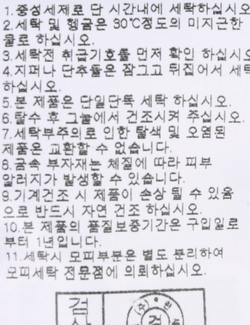 1.중성세제로 단 시간내에 세탁하십시오
2.세탁 및 헹굼은 30℃정도의 미지근한
물로 하십시오.
3.세탁전 취급기호를 먼저 확인 하십시오
4.지퍼나 단추들은 잠그고 뒤집어서 세탁
하십시오.
5.본 제품은 단일단독 세탁 하십시오.
6.탈수 후 그늘에서 건조시켜 주십시오.
7.세탁부주의로 인한 탈색 및 오염된
제품은 교환할 수 없습니다.
8.금속 부자재는 체질에 따라 피부
알러지가 발생할 수 있습니다.
9.기계건조 시 제품이 손상 될 수 있음
으로 반드시 자연 건조 하십시오.
10.본 제품의 품질보증기간은 구입일로
부터 1년입니다.
11.세탁시 모피부분은 별도 분리하여
모피세탁 전문점에 의뢰하십시오.
검